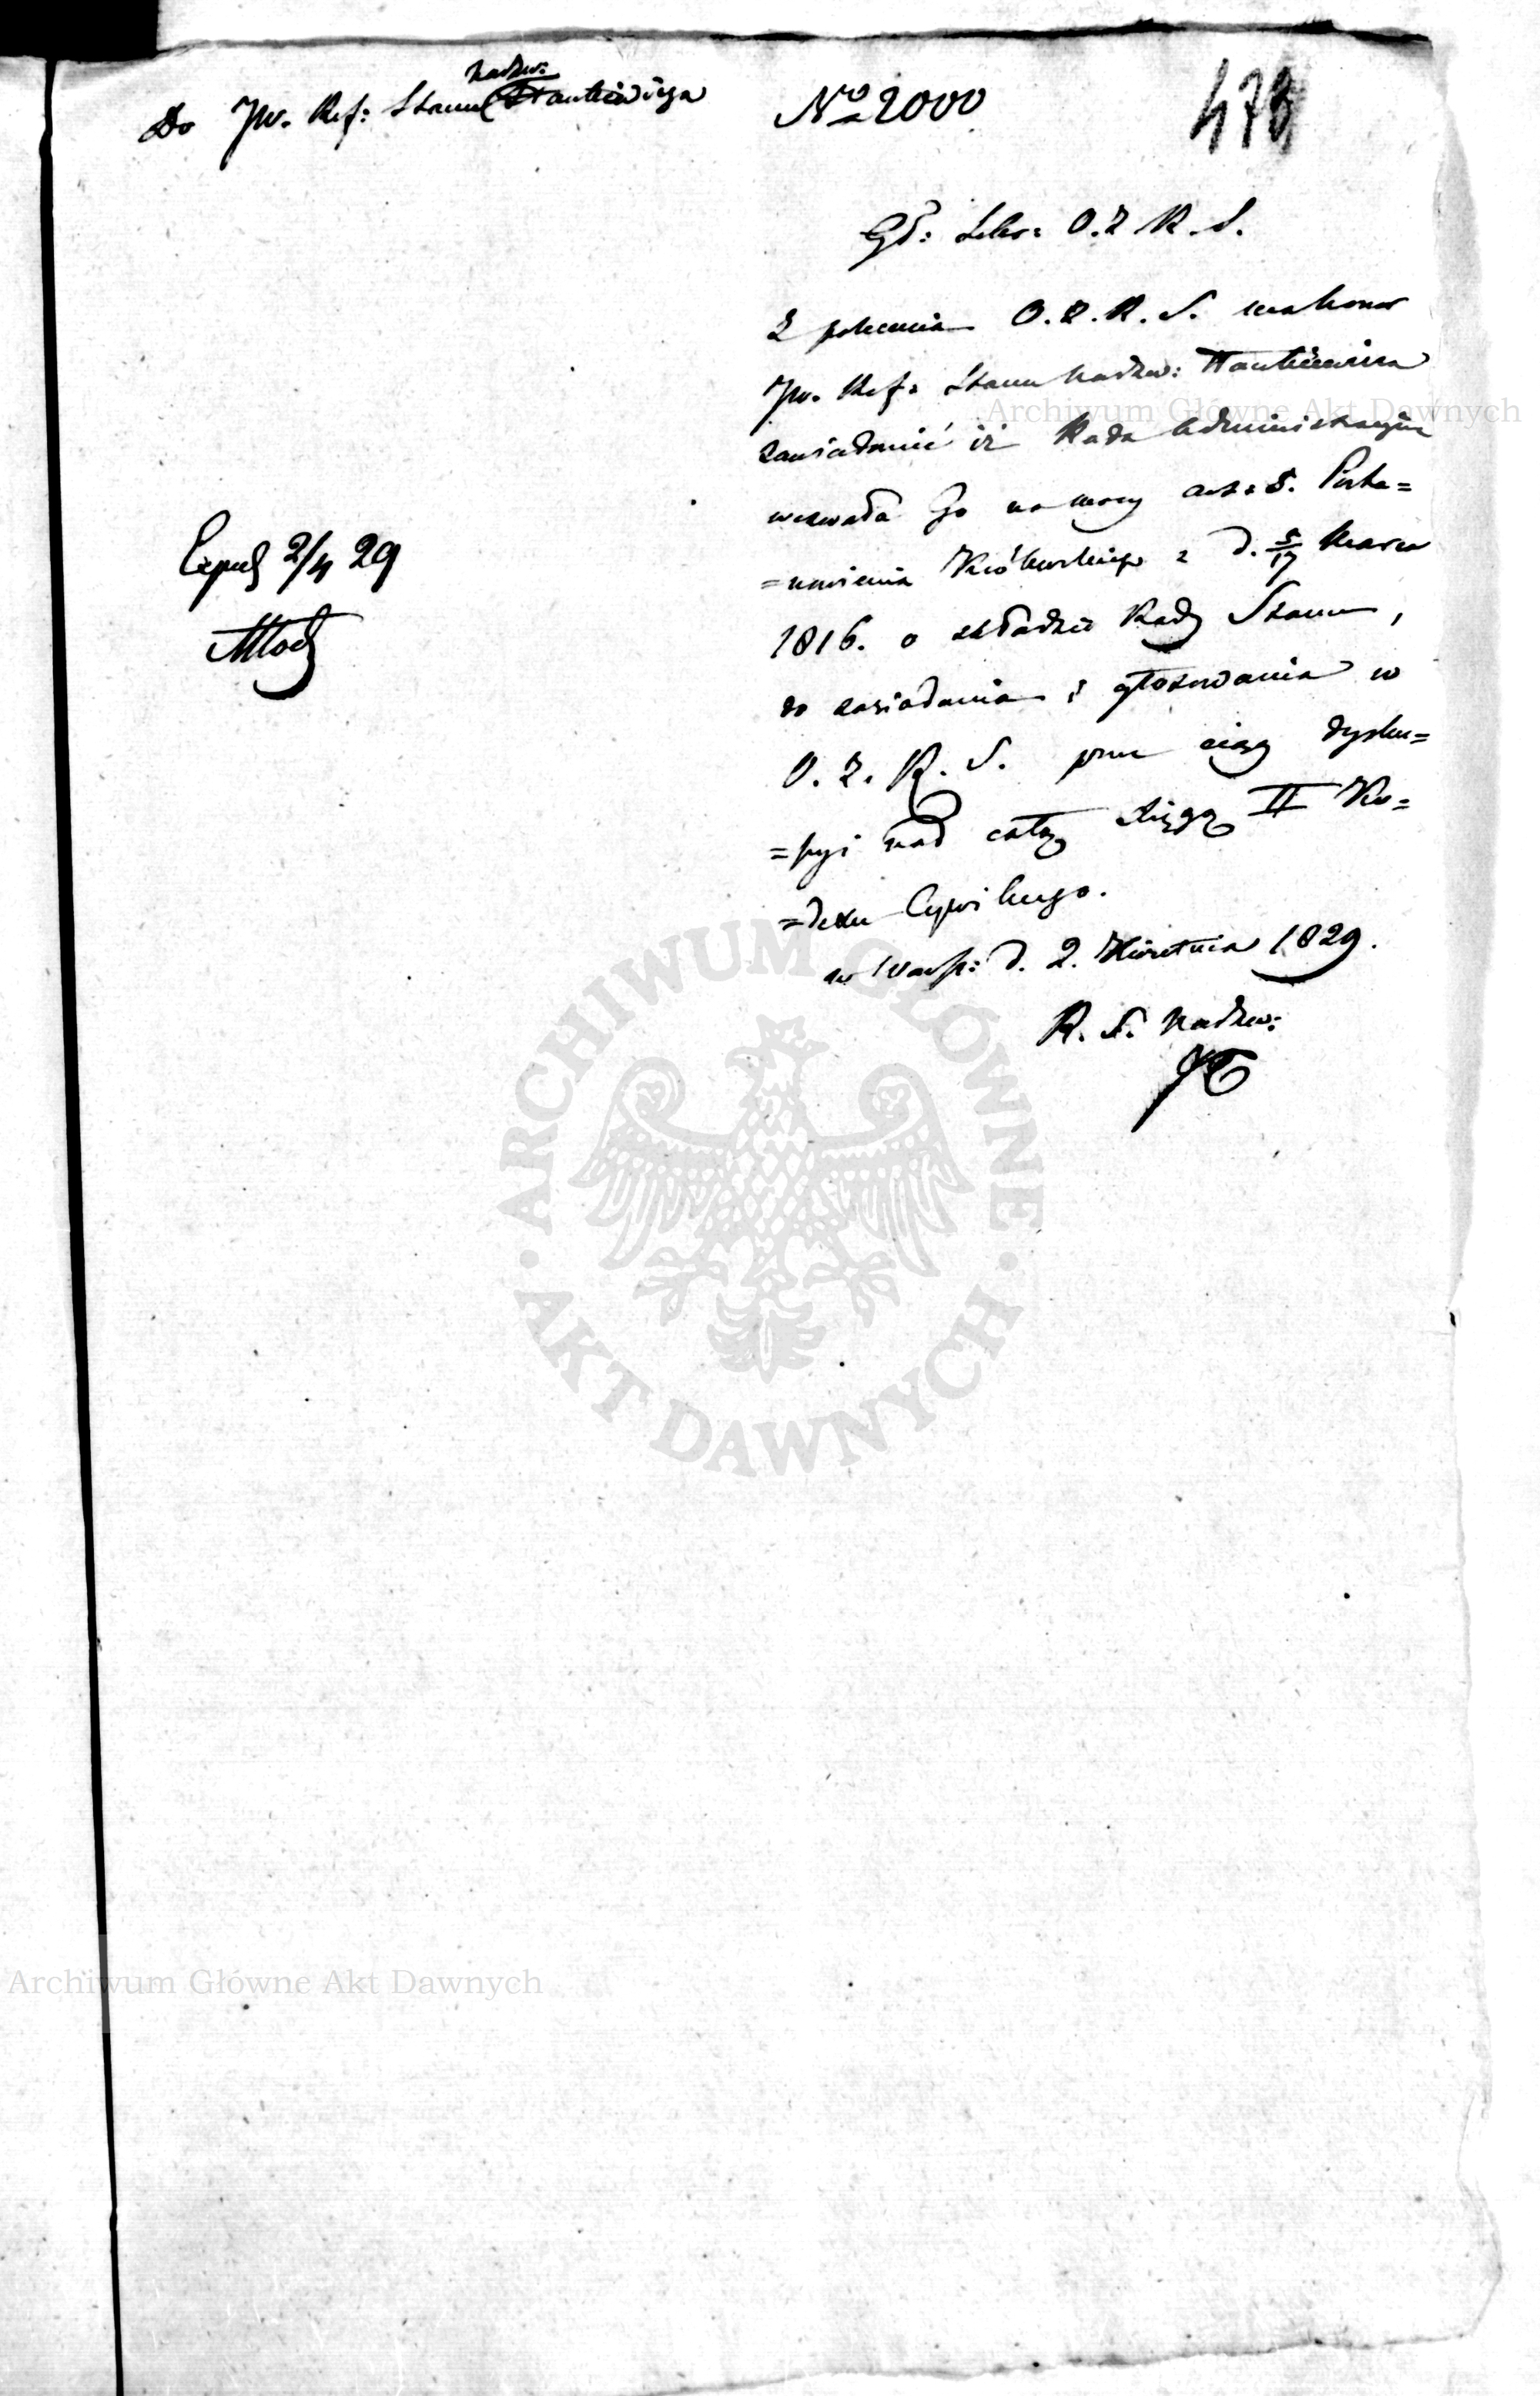 Do JW. Ref: Stanu Nadzw: Hankiewicza
No 2000
473
Gł: Sekr: O. Z. R. S.
Z polecenia O. Z. R. S. ma honor
JW. Ref: Stanu Nadzw: Hankiewicza
zawiadomić iż Rada Administracyjna
wezwała Go na mocy art: 5. Posta=
=nowienia Królewskiego z d. 5/17 Marca
1816. o składzie Rady Stanu,
do zasiadania i głosowania w
O. Z. R. S. przez ciąg dysku=
=syi nad całą Xięgą II Ko=
=dexu Cywilnego.
w Warsz: d. 2. Kwietnia 1829.
R. S. Nadzw:
Exped 2/4 29
Archiwum Główne Akt Dawnych
ARCHIWUM GŁÓWNE AKT DAWNYCH
Archiwum Główne Akt Dawnych